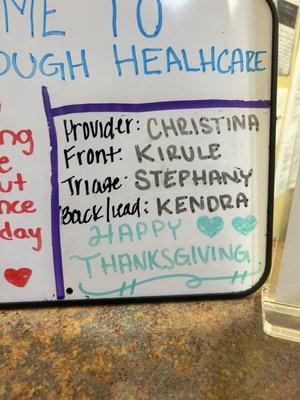 ME TO
OUGH HEALHCARE
ng
e
ut
nce
day
Provider: CHRISTINA
Front: KIRULE
Triage: STEPHANY
Back/lead: KENDRA
HAPPY
THANKSGIVING